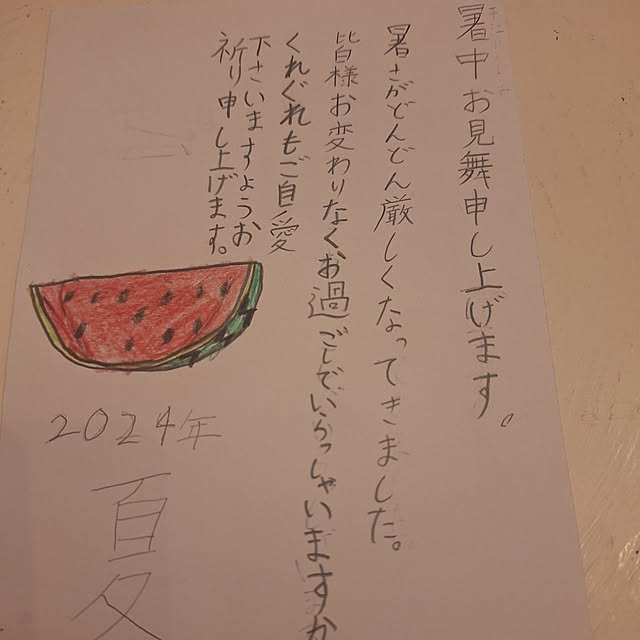 暑中お見舞申し上げます。
暑さがどんどん厳しくなってきました。
皆様お変わりなくお過ごしでいらっしゃいますか
くれぐれもご自愛
下さいますようお
祈り申し上げます。
2024年
夏